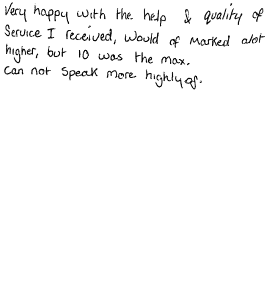 Very happy with the help & quality of
Service I received, would of marked alot
higher, but 10 was the max.
Can not speak more highly of.